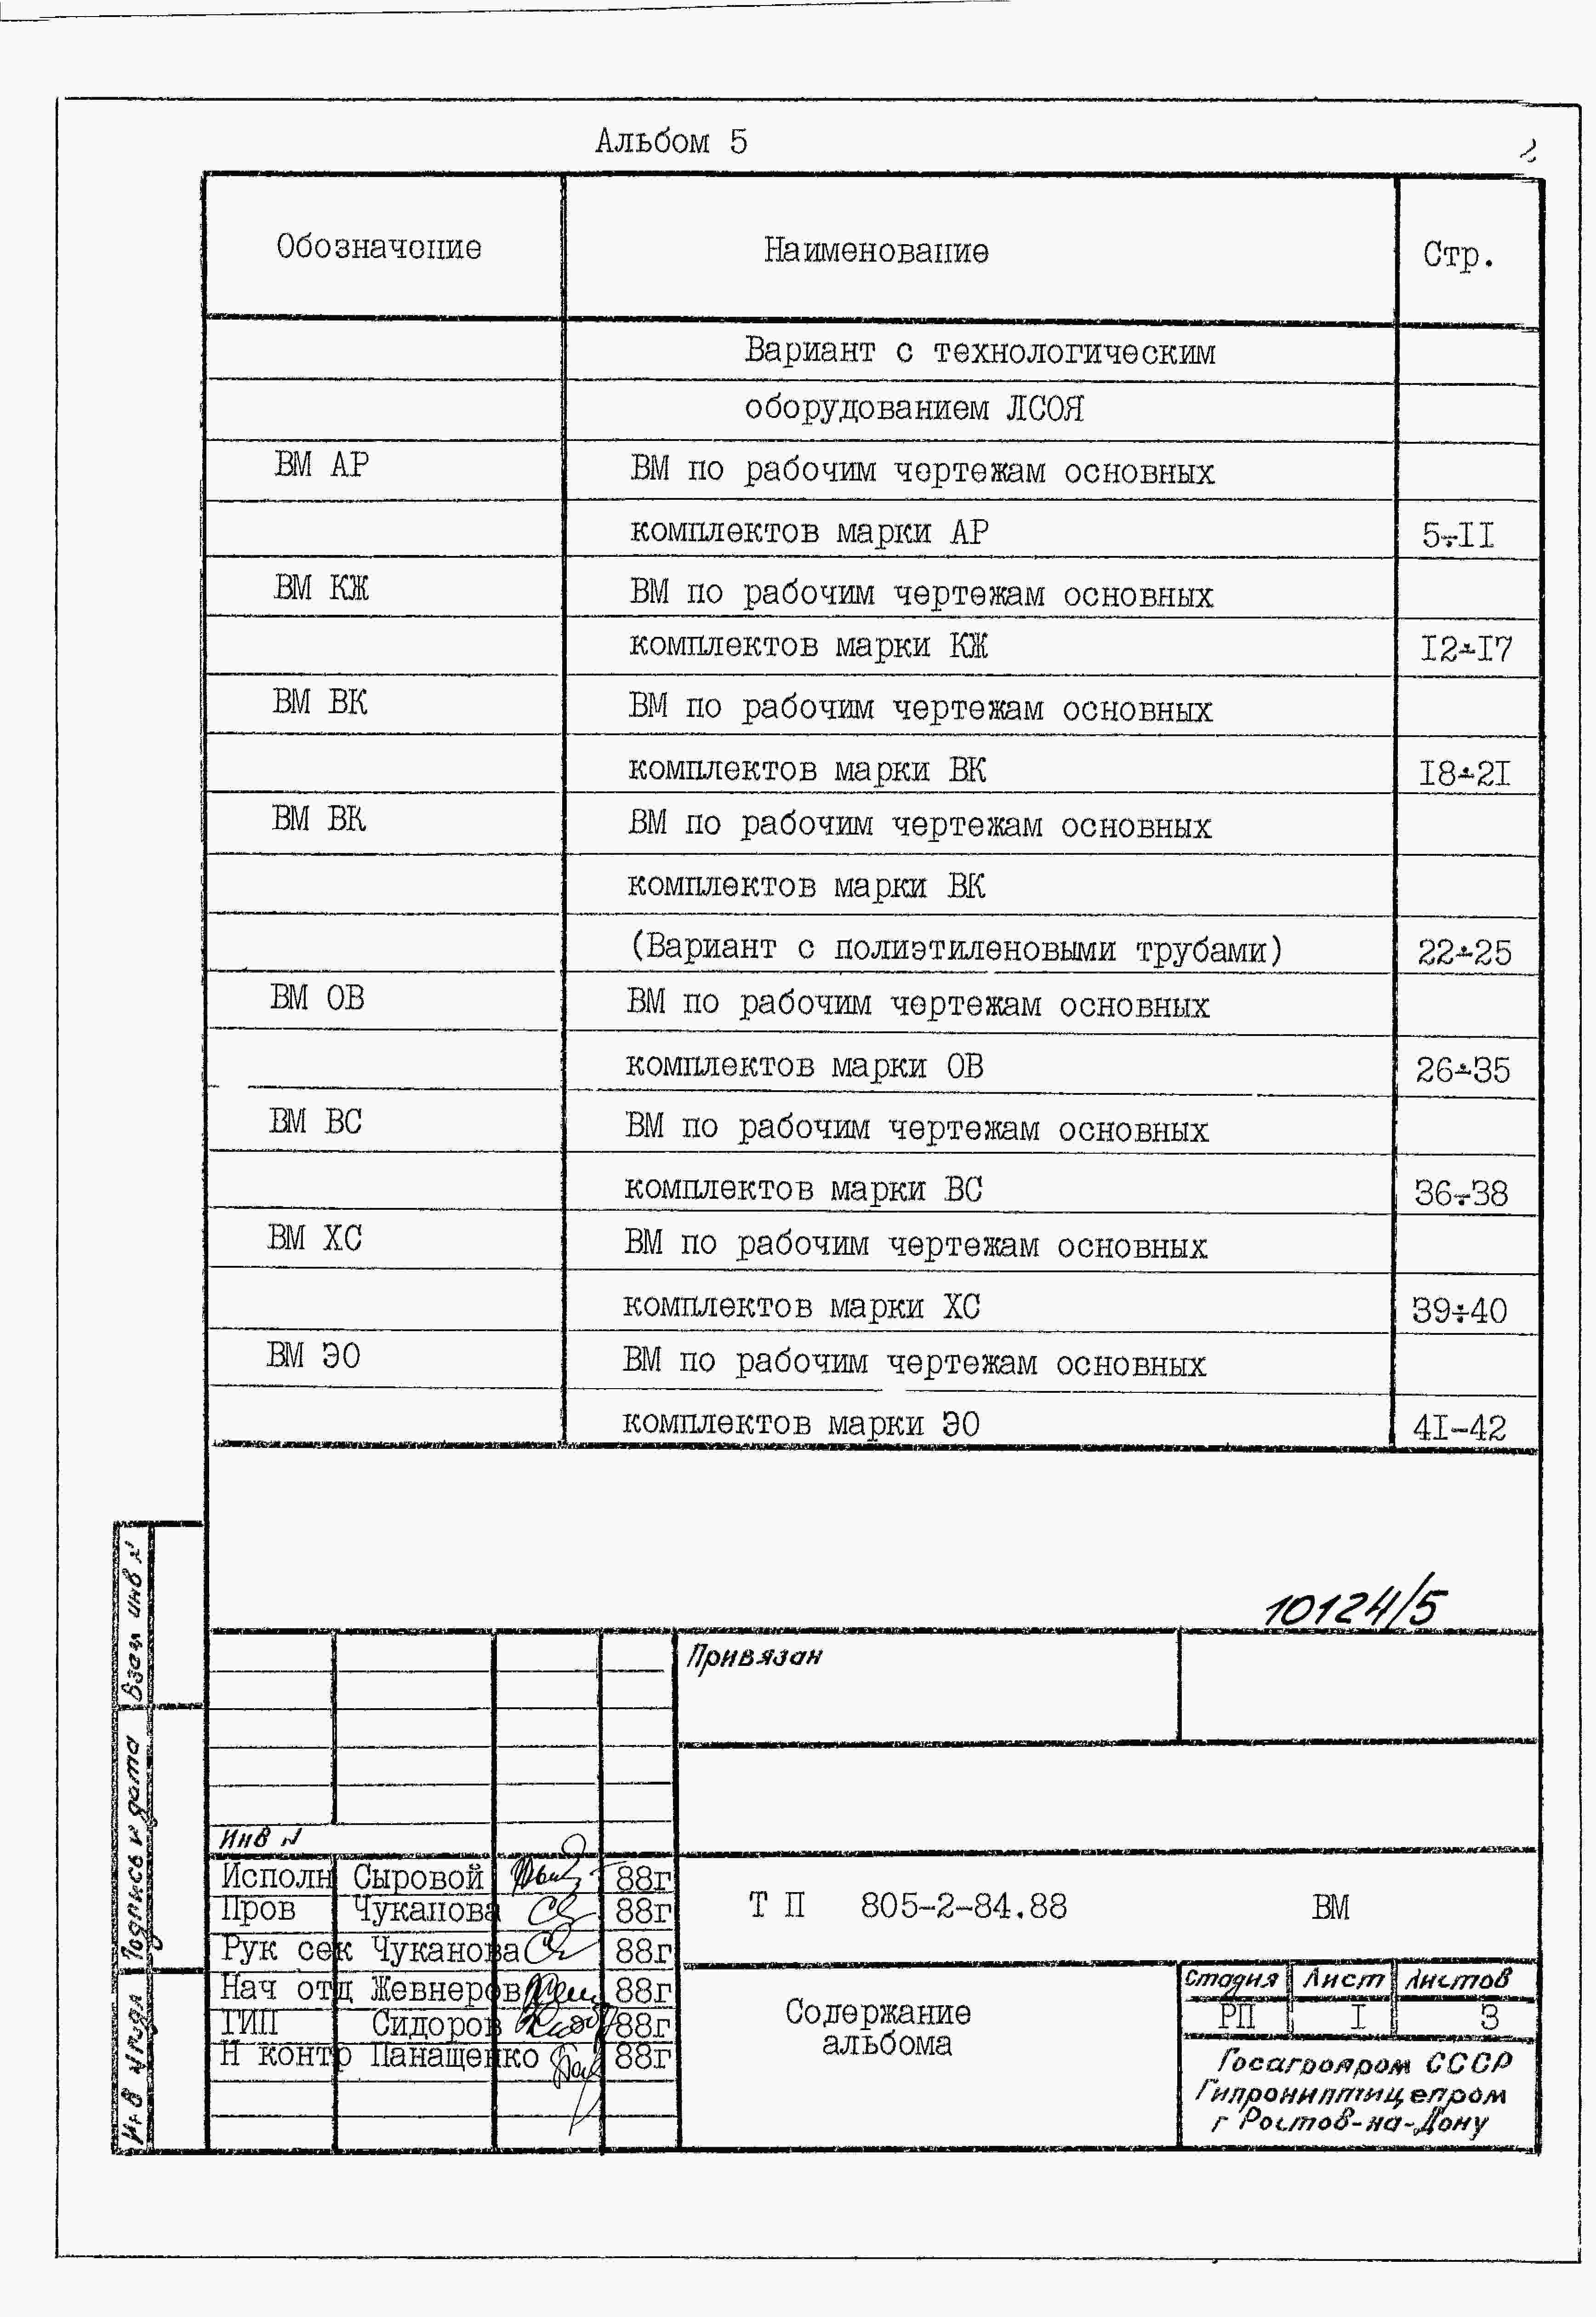 Альбом 5
2
Обозначение Наименование Стр.
Вариант с технологическим
оборудованием ЛСОЯ
ВМ АР ВМ по рабочим чертежам основных
комплектов марки АР 5÷II
ВМ КЖ ВМ по рабочим чертежам основных
комплектов марки КЖ I2÷I7
ВМ ВК ВМ по рабочим чертежам основных
комплектов марки ВК I8÷2I
ВМ ВК ВМ по рабочим чертежам основных
комплектов марки ВК
(Вариант с полиэтиленовыми трубами) 22÷25
ВМ ОВ ВМ по рабочим чертежам основных
комплектов марки ОВ 26÷35
ВМ ВС ВМ по рабочим чертежам основных
комплектов марки ВС 36÷38
ВМ ХС ВМ по рабочим чертежам основных
комплектов марки ХС 39÷40
ВМ ЭО ВМ по рабочим чертежам основных
комплектов марки ЭО 4I-42
10124/5
Привязан
Взам инв №
Подпись и дата
Инв № подл
Инв №
Исполн Сыровой 88г
Пров Чуканова 88г
Рук сек Чуканова 88г
Нач отд Жевнеров 88г
ГИП Сидоров 88г
Н контр Панащенко 88г
Т П 805-2-84.88 ВМ
Содержание
альбома
Стадия Лист Листов
РП I 3
Госагропром СССР
Гипрониптицепром
г Ростов-на-Дону